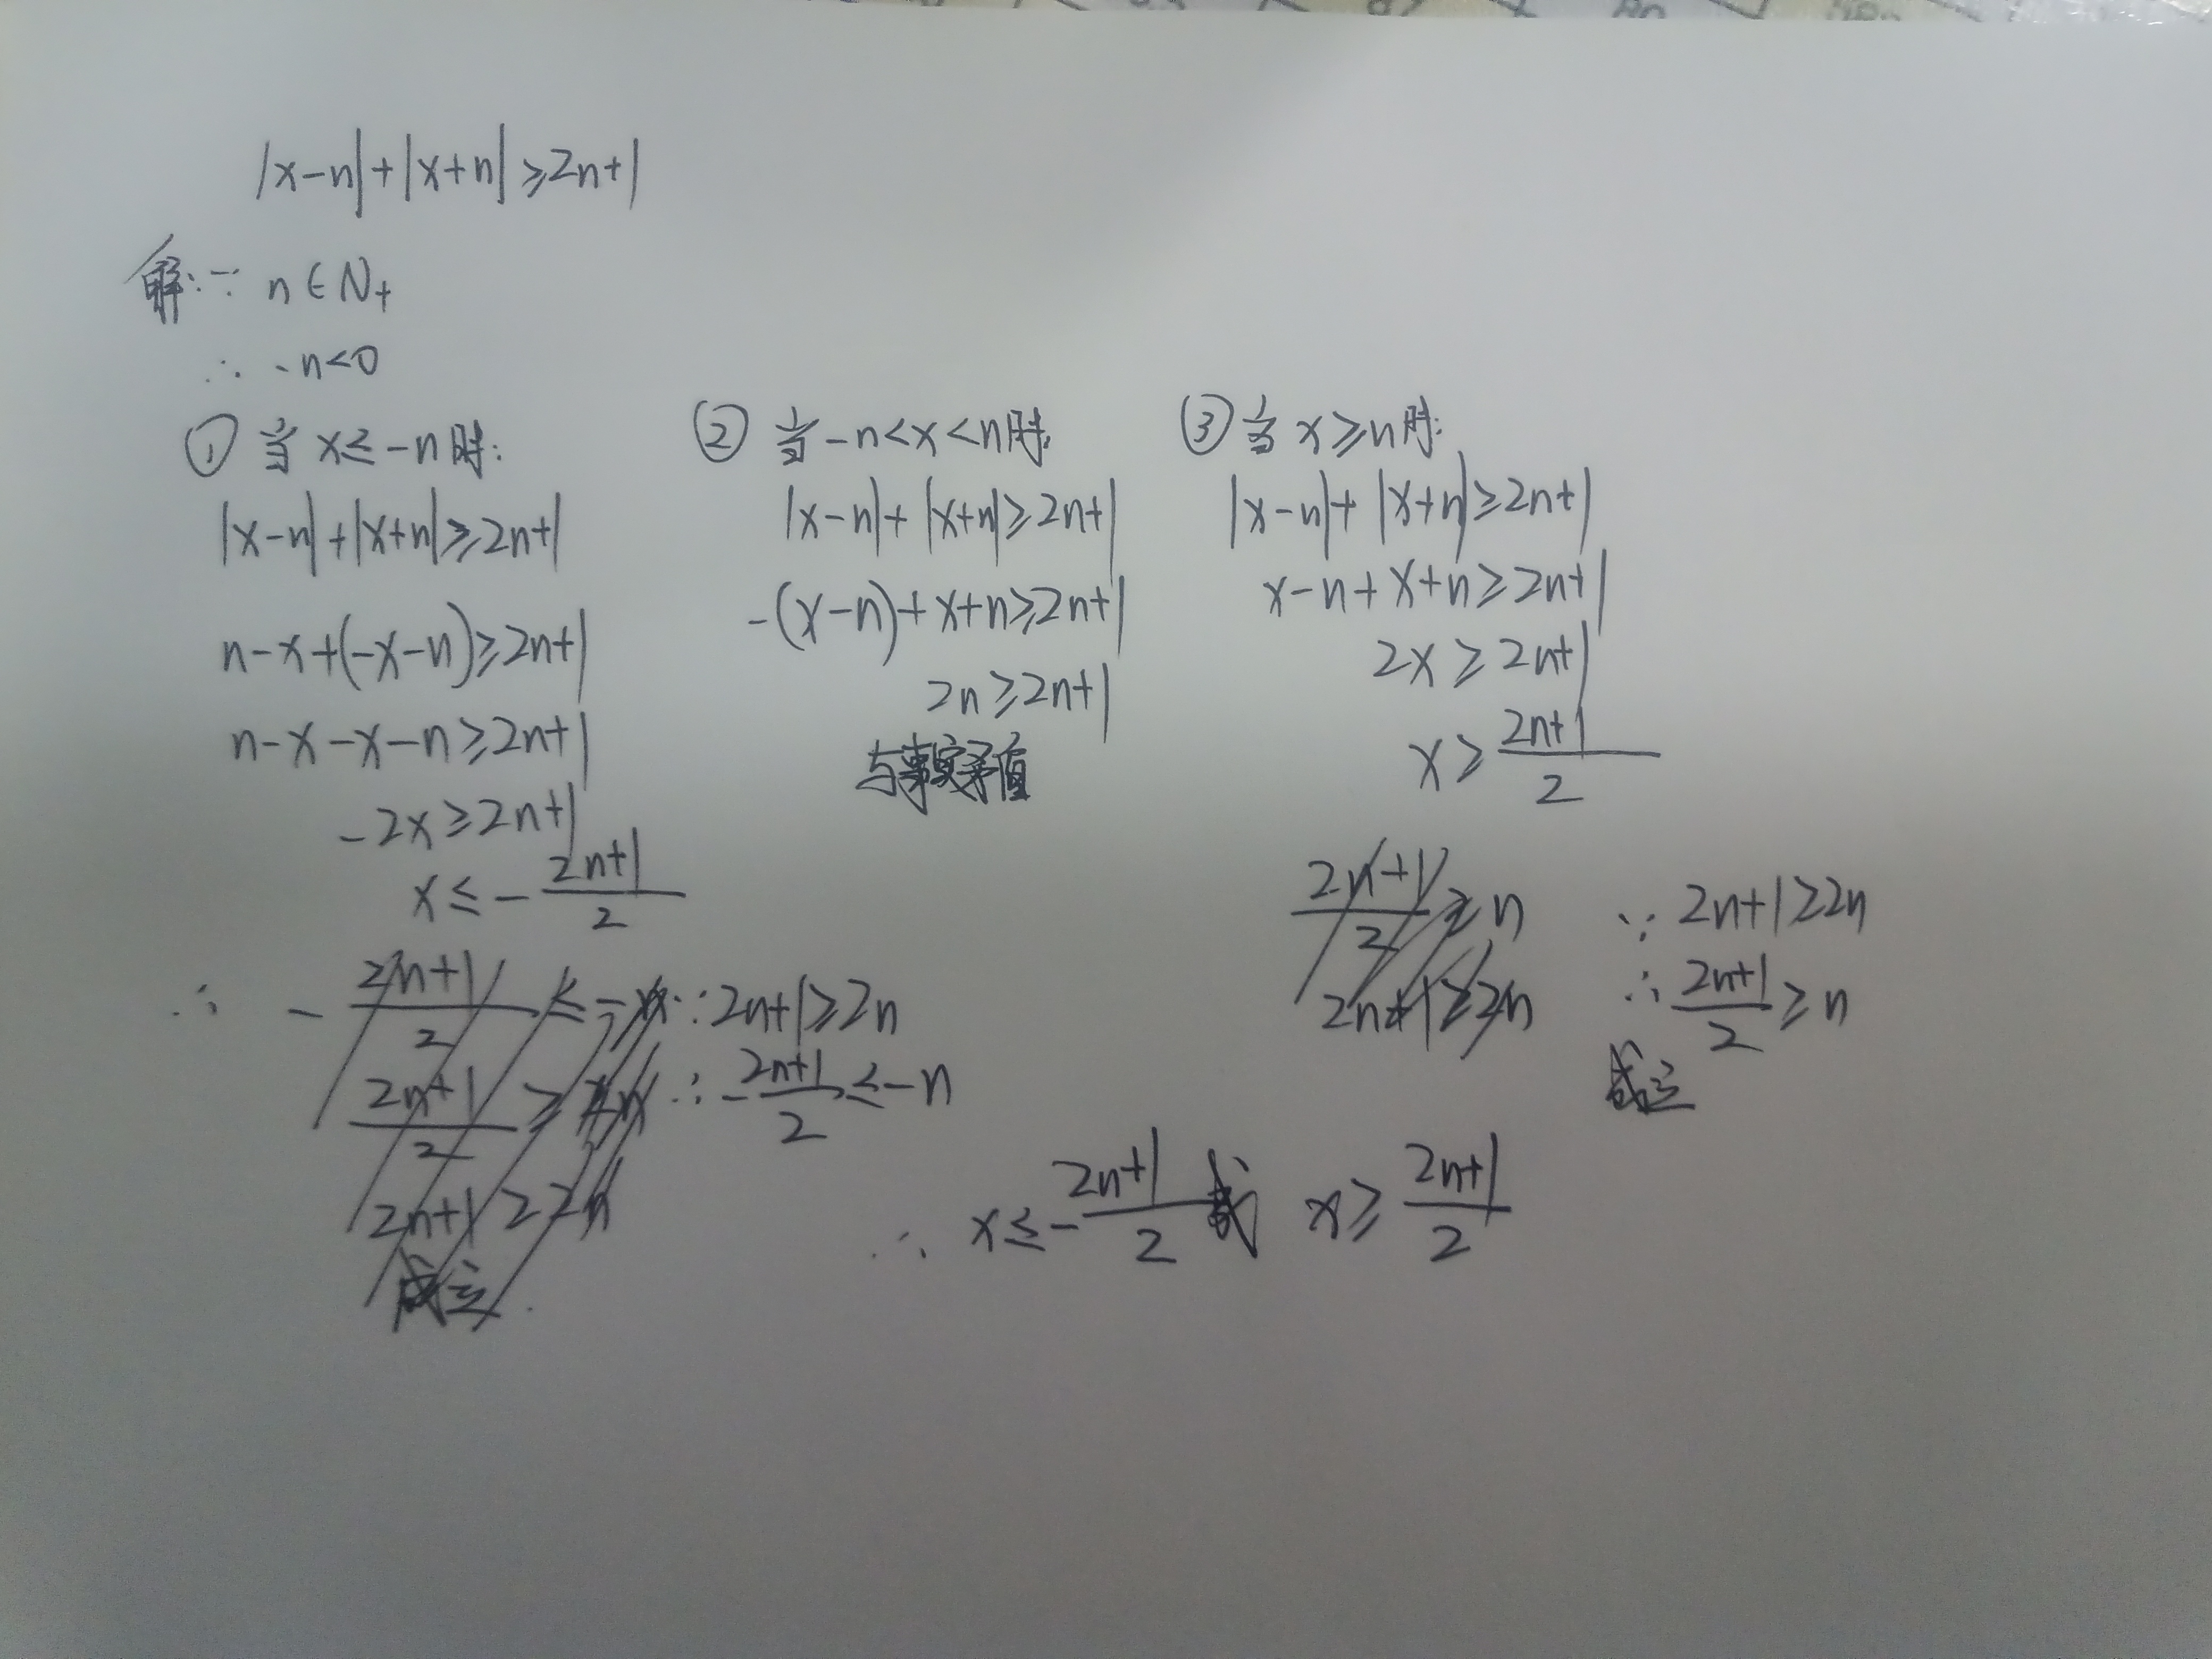 |x-n|+|x+n|≥2n+1
解:∵ n∈N+
∴ -n<0
① 当 x≤-n时:
|x-n|+|x+n|≥2n+1
n-x+(-x-n)≥2n+1
n-x-x-n≥2n+1
-2x≥2n+1
x≤-\frac{2n+1}{2}
∵2n+1≥2n
∴-\frac{2n+1}{2}≤-n
② 当-n<x<n时:
|x-n|+|x+n|≥2n+1
-(x-n)+x+n≥2n+1
2n≥2n+1
与事实矛盾
③ 当x≥n时:
|x-n|+|x+n|≥2n+1
x-n+x+n≥2n+1
2x≥2n+1
x≥\frac{2n+1}{2}
∵ 2n+1≥2n
∴ \frac{2n+1}{2}≥n
成立
∴ x≤-\frac{2n+1}{2} 或 x≥\frac{2n+1}{2}